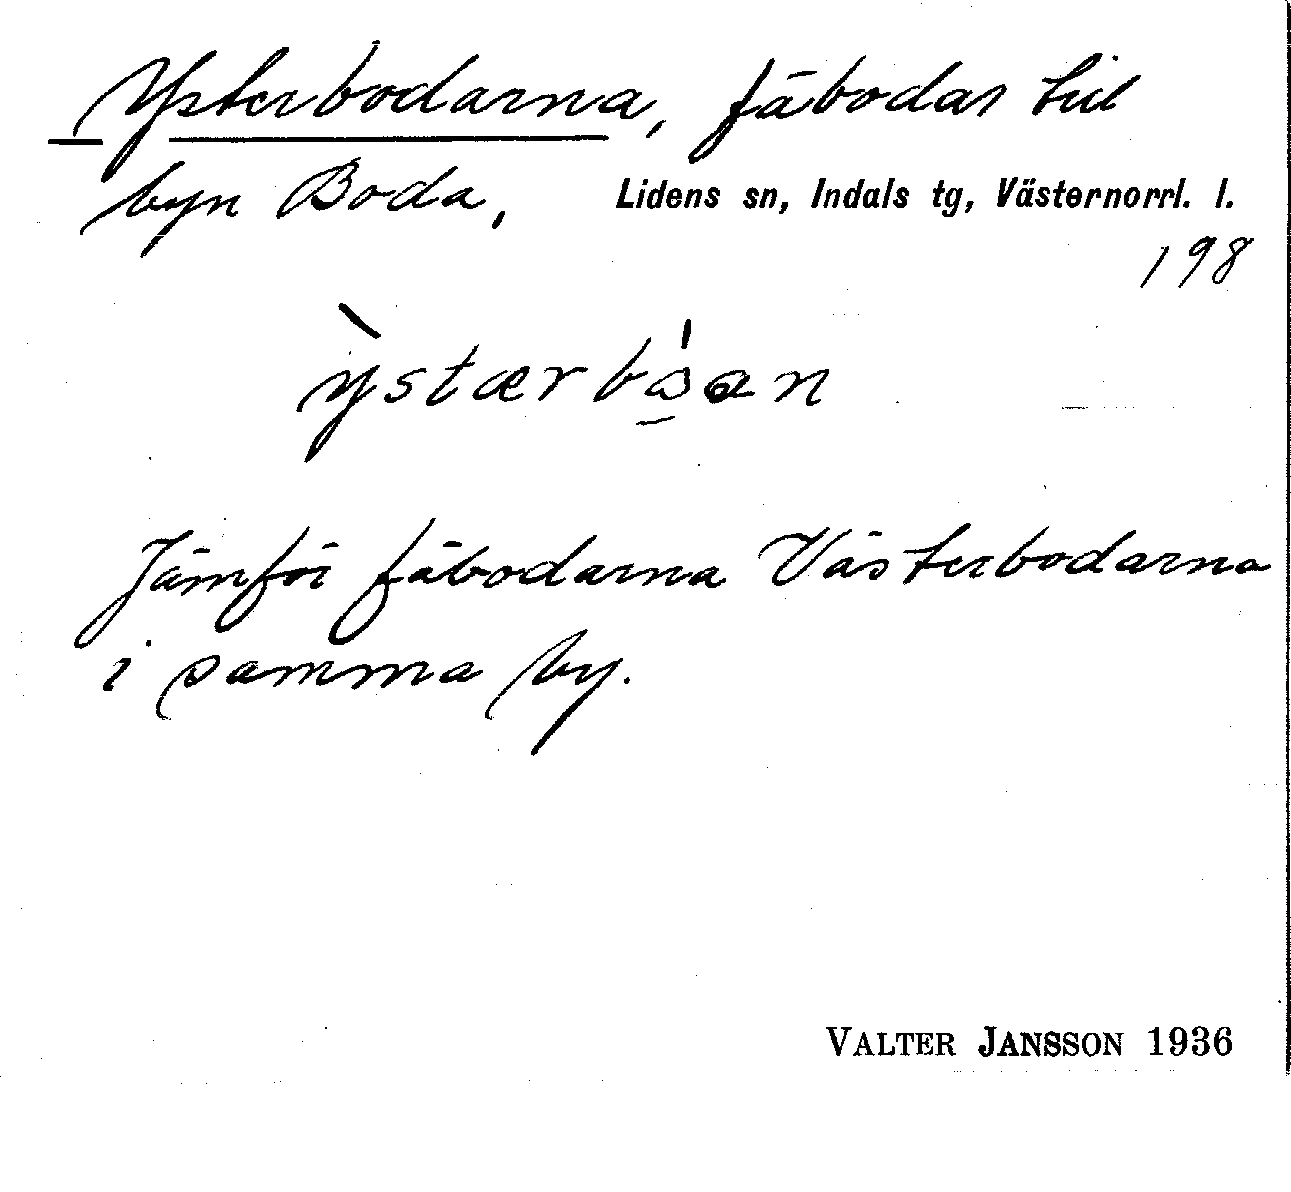 Ysterbodarna, fäbodar till
byn Boda, Lidens sn, Indals tg, Västernorrl. l.
198
Jämför fäbodarna Västerbodarna
i samma by.
VALTER JANSSON 1936